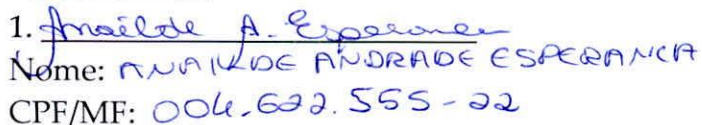 1. Anailde A. Esperanca
Nome: ANAILDE ANDRADE ESPERANCA
CPF/MF: 004.622.555-22